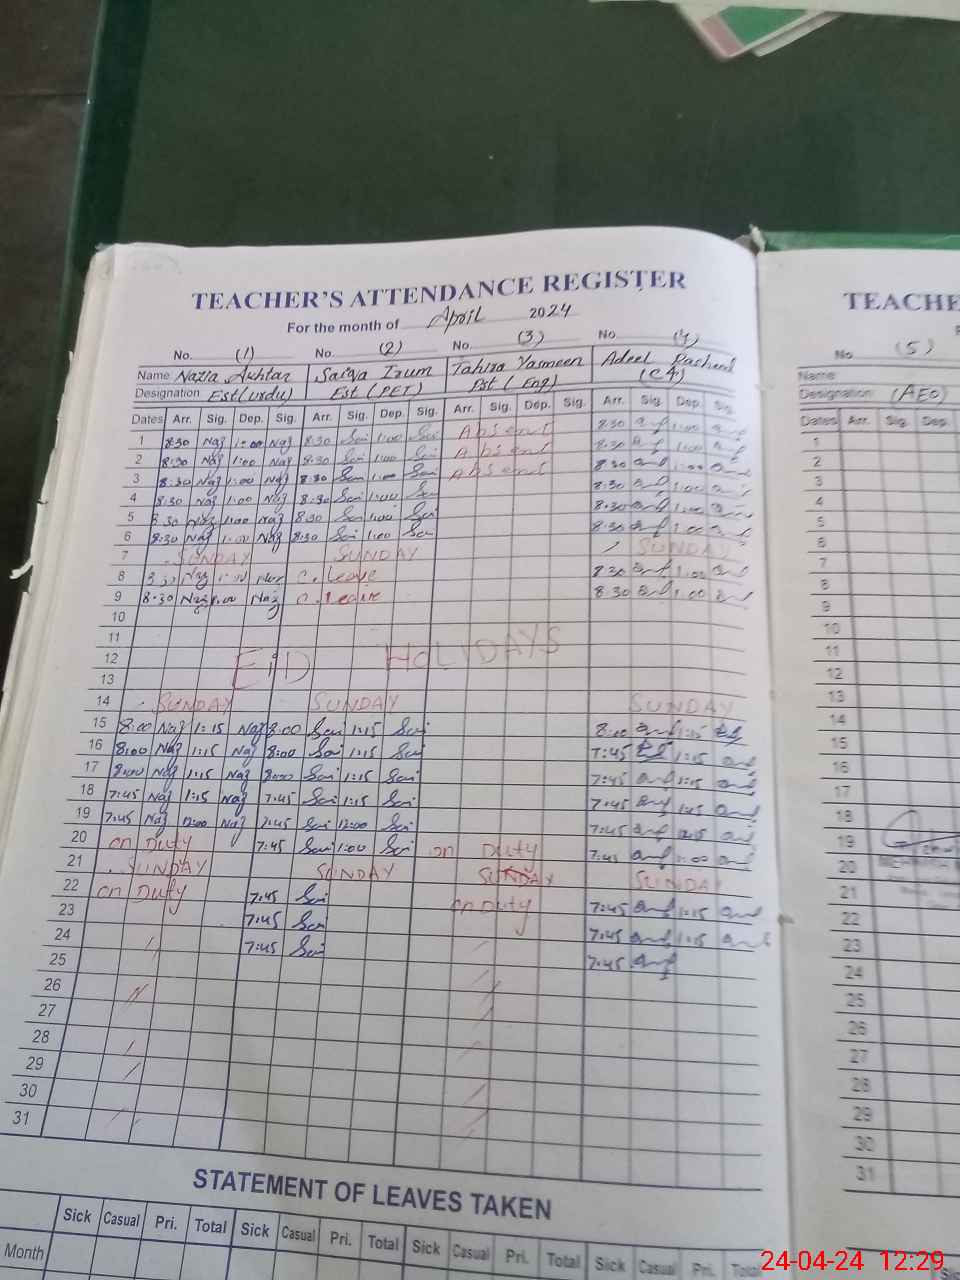 TEACHER'S ATTENDANCE REGISTER
For the month of April 2024
No. (1) No. (2) No. (3) No. (4)
Name Nazia Akhtar Saiqa Irum Tahira Yasmeen Adeel Rasheed
Designation Est(urdu) Est (PET) Est (Eng) (C4)
Dates Arr. Sig. Dep. Sig. Arr. Sig. Dep. Sig. Arr. Sig. Dep. Sig. Arr. Sig. Dep. Sig.
1 8:30 Naz 1:00 Naz 8:30 Sai 1:00 Sai Absent 8:30 1:00
2 8:30 Naz 1:00 Naz 8:30 Sai 1:00 Sai Absent 8:30 1:00
3 8:30 Naz 1:00 Naz 8:30 Sai 1:00 Sai Absent 8:30 1:00
4 8:30 Naz 1:00 Naz 8:30 Sai 1:00 Sai 8:30 1:00
5 8:30 Naz 1:00 Naz 8:30 Sai 1:00 Sai 8:30 1:00
6 8:30 Naz 1:00 Naz 8:30 Sai 1:00 Sai 8:30 1:00
7 SUNDAY SUNDAY SUNDAY
8 8:30 Naz 1:00 C. Leave 8:30 1:00
9 8:30 Naz 1:00 Naz C. Leave 8:30 1:00
10
11
12 EID HOLIDAYS
13
14 SUNDAY SUNDAY SUNDAY
15 8:00 Naz 1:15 Naz 8:00 Sai 1:15 Sai 8:00 1:15
16 8:00 Naz 1:15 Naz 8:00 Sai 1:15 Sai 7:45 1:15
17 8:00 Naz 1:15 Naz 8:00 Sai 1:15 Sai 7:45 1:15
18 7:45 Naz 1:15 Naz 7:45 Sai 1:15 Sai 7:45
19 7:45 Naz 12:00 Naz 7:45 Sai 12:00 Sai 7:45
20 on Duty 7:45 Sai 1:00 Sai on Duty 7:45 1:00
21 SUNDAY SUNDAY SUNDAY SUNDAY
22 on Duty 7:45 Sai on Duty 7:45 1:15
23 7:45 Sai 7:45 1:15
24 7:45 Sai 7:45
25
26
27
28
29
30
31
STATEMENT OF LEAVES TAKEN
Sick Casual Pri. Total Sick Casual Pri. Total Sick Casual Pri. Total Sick Casual Pri. Total
Month
TEACHE
No (5)
Name
Designation (AEO)
Dates Arr. Sig. Dep.
1
2
3
4
5
6
7
8
9
10
11
12
13
14
15
16
17
18
19
20
21
22
23
24
25
26
27
28
29
30
31
Sick
24-04-24 12:29